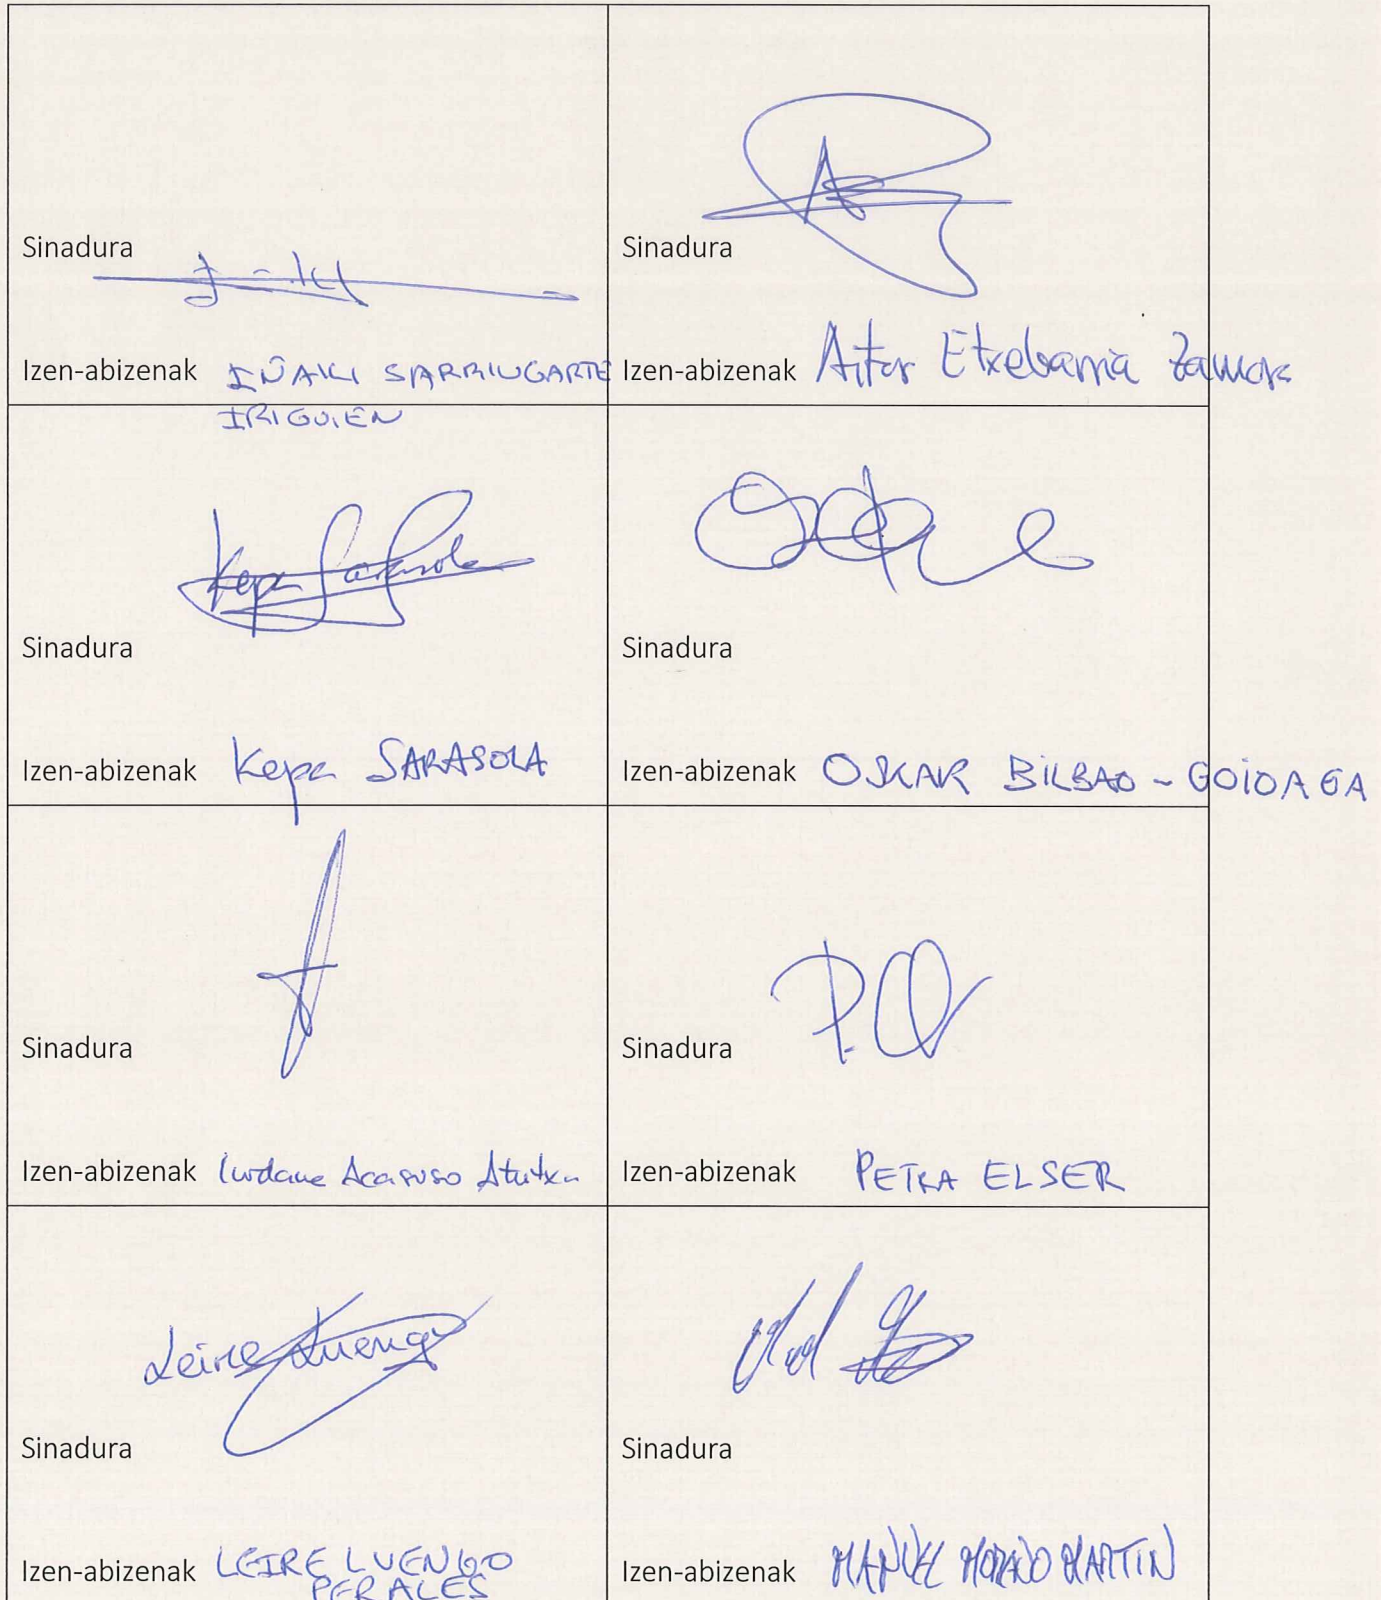 Sinadura
Sinadura
Izen-abizenak IÑAKI SARRIUGARTE
IRIGOIEN
Izen-abizenak Aitor Etxebarria Zamora
Kepa Sarasola
Sinadura
Sinadura
Izen-abizenak Kepa SARASOLA
Izen-abizenak OSKAR BILBAO - GOIOAGA
Sinadura
Sinadura
Izen-abizenak Iurdana Acasuso Atutxa
Izen-abizenak PETRA ELSER
Leire Luengo
Sinadura
Sinadura
Izen-abizenak LEIRE LUENGO
PERALES
Izen-abizenak MANUEL MORENO MARTIN